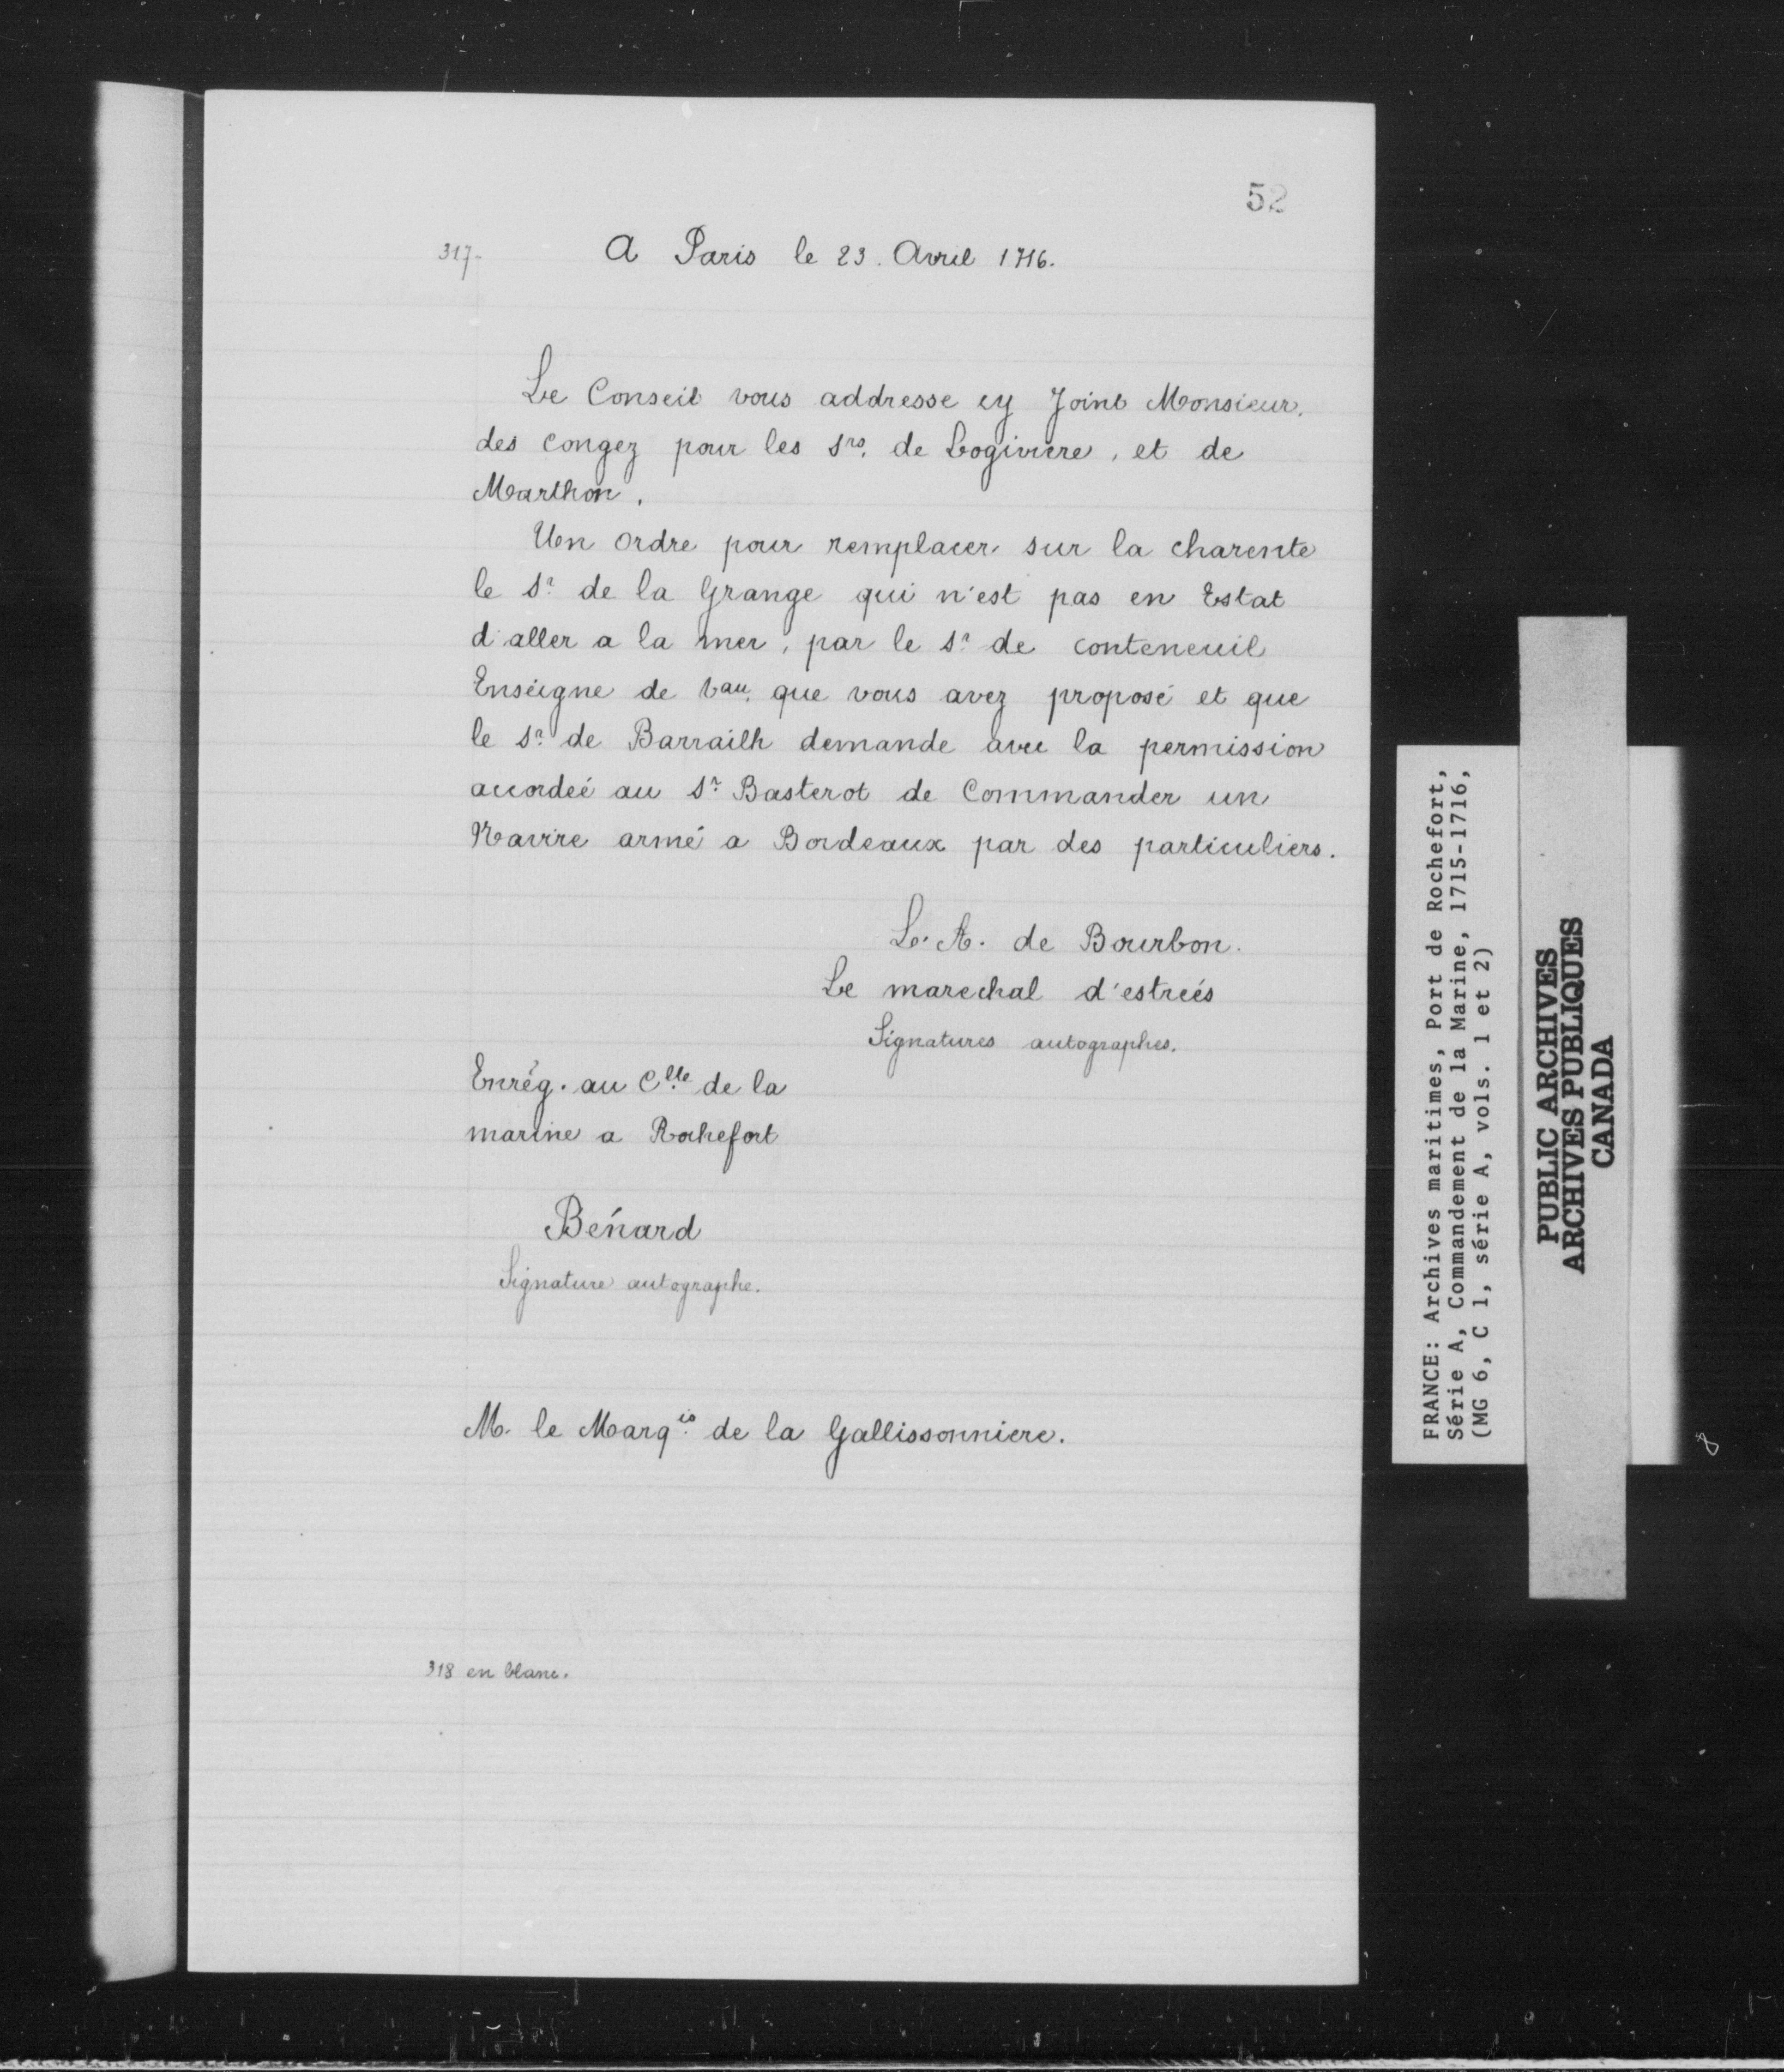 52
317-
A Paris le 23. Avril 1716.
Le Conseil vous addresse cy Joint Monsieur.
des congez pour les Srs. de Logiviere, et de
Marthon.
Un ordre pour remplacer sur la charente
le Sr. de la Grange qui n'est pas en Estat
d'aller a la mer, par le Sr. de conteneuil
Enseigne de Vau. que vous avez proposé et que
le Sr. de Barrailh demande avec la permission
accordeé au Sr. Basterot de Commander un
Navire armé a Bordeaux par des particuliers.
L. A. de Bourbon.
Le marechal d'estreés
Signatures autographes.
Enrég. au Clle de la
marine a Rochefort
Bénard
Signature autographe.
M. le Marqis. de la Gallissonniere.
318 en blanc.
FRANCE: Archives maritimes, Port de Rochefort,
Série A, Commandement de la Marine, 1715-1716,
(MG 6, C 1, série A, vols. 1 et 2)
PUBLIC ARCHIVES
ARCHIVES PUBLIQUES
CANADA
8